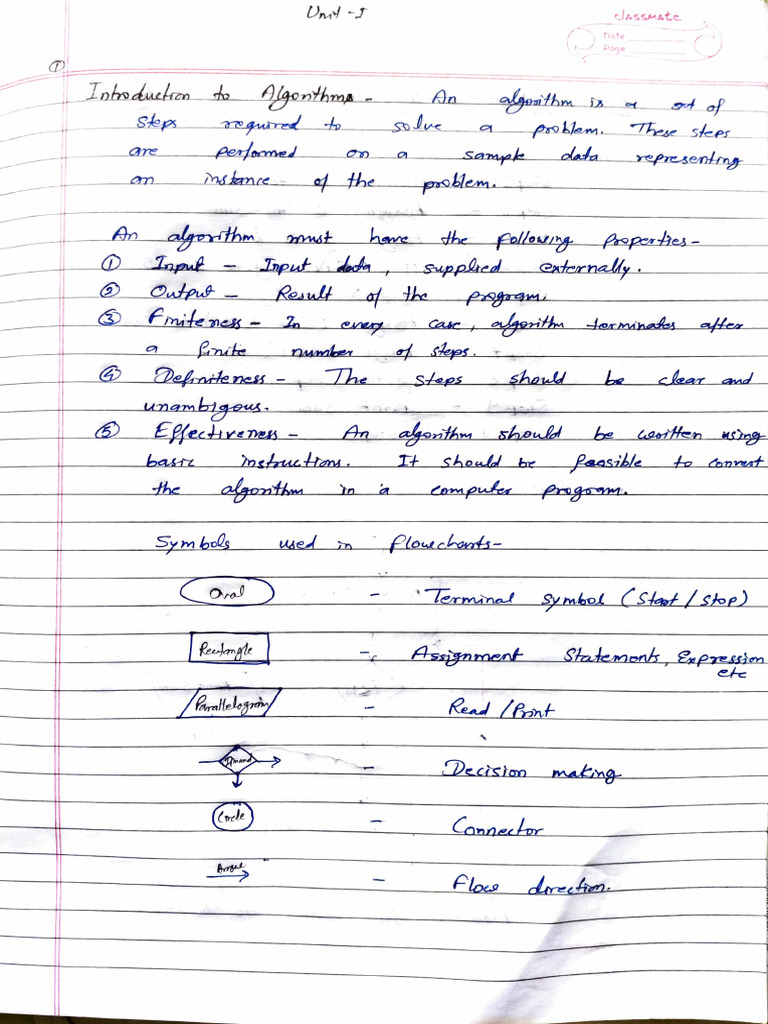 Unit - I
classmate
Date
Page
①
Introduction to Algorithms - An algorithm is a set of
steps required to solve a problem. These steps
are performed on a sample data representing
an instance of the problem.
An algorithm must have the following properties -
① Input - Input data, supplied externally.
② Output - Result of the program.
③ Finiteness - In every case, algorithm terminates after
a finite number of steps.
④ Definiteness - The steps should be clear and
unambigous.
⑤ Effectiveness - An algorithm should be written using
basic instructions. It should be feasible to convert
the algorithm in a computer program.
Symbols used in flowcharts -
Oval - Terminal symbol (Start / Stop)
Rectangle - Assignment Statements, Expression
etc
Parallelogram - Read / Print
- Decision making
Circle - Connector
Arrow - Flow direction.